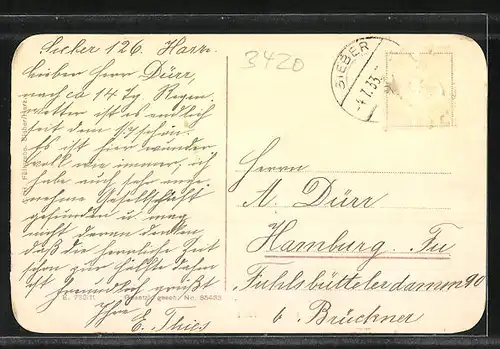 Sieber 126. Harz.
Lieber Herr Dürr,
nach ca 14 Tg Regen
wetter ist es endlich
seit dem
Es ist hier wunder
voll wie immer, ich
habe auch sehr ange
nehme Gesellschaft
gefunden u. mag
nicht daran denken,
daß die herrliche Zeit
schon zur Hälfte dahin
ist. Freundlich grüßt
Ihre
E. Thies
E. 793/11. Gesetzl. gesch. No. 85433
3420
SIEBER
-4.7.33.
Herrn
A. Dürr
Hamburg. Fu
Fuhlsbüttelerdamm 90
b. Brüchner